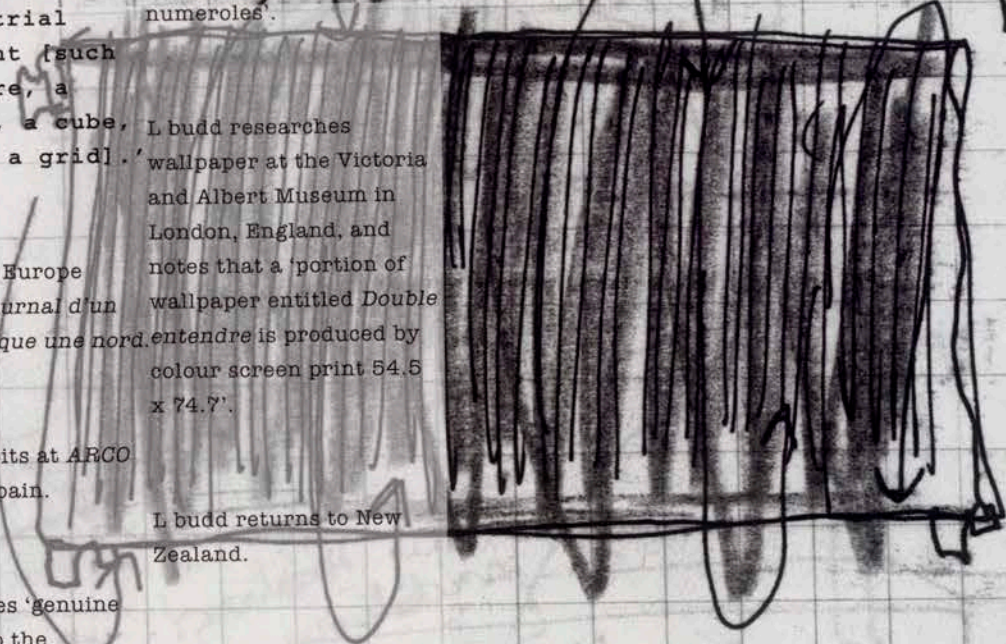 trial
[such
a
a cube,
a grid].'
Europe
d'un
que une nord.
its at ARCO
'genuine
the
numeroles'.
L budd researches
wallpaper at the Victoria
and Albert Museum in
London, England, and
notes that a 'portion of
wallpaper entitled Double
entendre is produced by
colour screen print 54.5
x 74.7'.
L budd returns to New
Zealand.